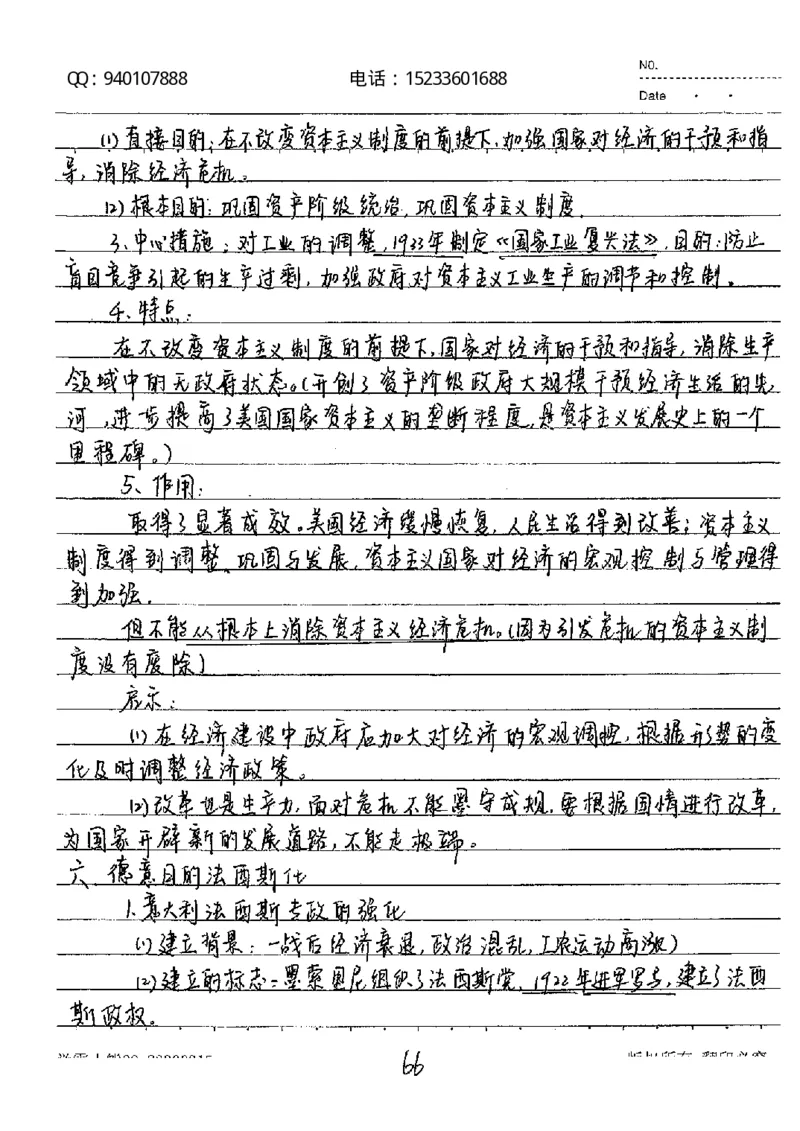 QQ：940107888 电话：15233601688 NO.
Date
(1)直接目的：在不改变资本主义制度的前提下，加强国家对经济的干预和指
导，消除经济危机。
(2)根本目的：巩固资产阶级统治，巩固资本主义制度。
3、中心措施：对工业的调整，1933年制定《国家工业复兴法》，目的：防止
盲目竞争引起的生产过剩，加强政府对资本主义工业生产的调节和控制。
4、特点：
在不改变资本主义制度的前提下，国家对经济的干预和指导，消除生产
领域中的无政府状态。(开创了资产阶级政府大规模干预经济生活的先
河，进一步提高了美国国家资本主义的垄断程度，是资本主义发展史上的一个
里程碑。)
5、作用：
取得了显著成效。美国经济缓慢恢复，人民生活得到改善；资本主义
制度得到调整、巩固与发展，资本主义国家对经济的宏观控制与管理得
到加强。
但不能从根本上消除资本主义经济危机。(因为引发危机的资本主义制
度没有废除)
启示：
(1)在经济建设中政府应加大对经济的宏观调控，根据形势的变
化及时调整经济政策。
(2)改革也是生产力，面对危机不能墨守成规，要根据国情进行改革，
为国家开辟新的发展道路，不能走极端。
六、德意日的法西斯化
1.意大利法西斯专政的强化
(1)建立背景：一战后经济衰退，政治混乱，工农运动高涨)
(2)建立的标志：墨索里尼组织了法西斯党，1922年进军罗马，建立了法西
斯政权。
66